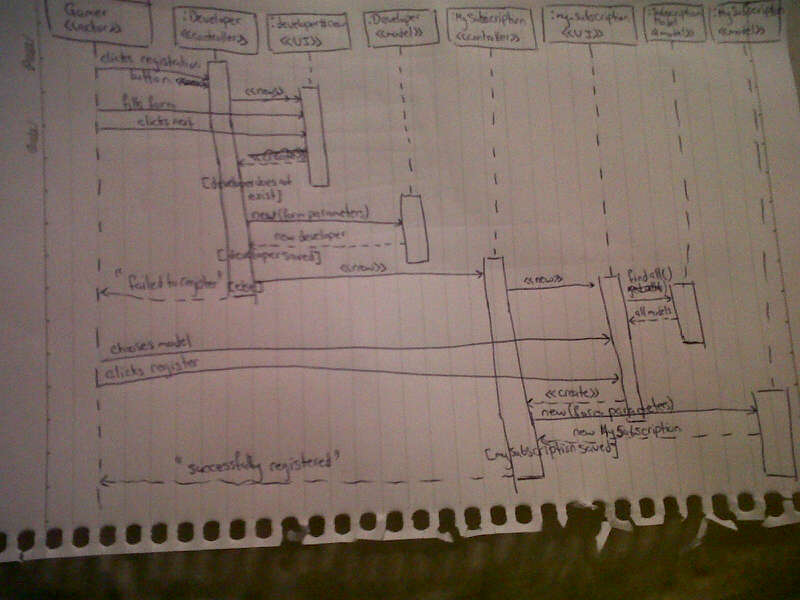 Gamer
<<actor>>
:Developer
<<controller>>
<<UI>>
:Developer
<<model>>
:MySubscription
<<controller>>
:my_subscription
<<UI>>
:Subscription
Model
<<model>>
:MySubscription
<<model>>
clicks registration
button
<<new>>
fills form
clicks next
<<create>>
[developer does not
exist]
new(form parameters)
new developer
[developer saved]
<<new>>
"failed to register" [else]
<<new>>
find all()
all models
chooses model
clicks register
<<create>>
new (form parameters)
new MySubscription
[my subscription saved]
"successfully registered"